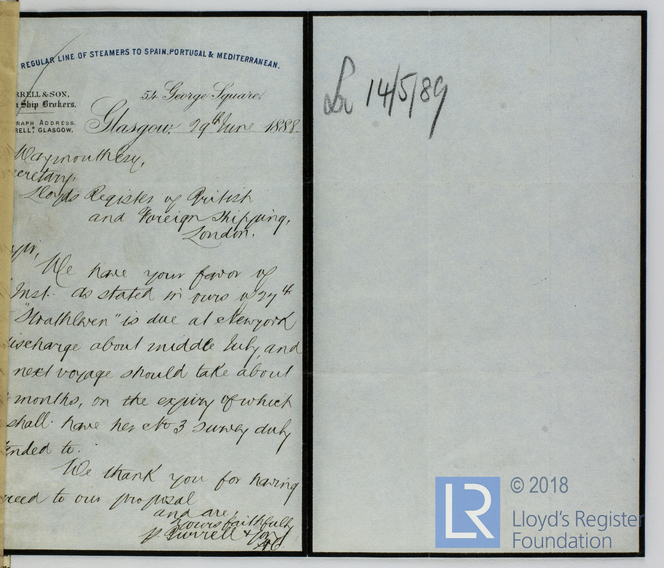 REGULAR LINE OF STEAMERS TO SPAIN, PORTUGAL & MEDITERRANEAN.
RRELL & SON,
Ship Brokers.
RAPH ADDRESS.
RELL, GLASGOW.
54 George Square,
Glasgow, 29th June 1888.
Waymouth Esq,
ecretary,
Lloyds Register of British
and Foreign Shipping,
London.
We have your favor of
Inst. As stated in ours of 27th
"Strathleven" is due at Newyork
ischarge about middle July, and
next voyage should take about
months, on the expiry of which
shall have her No 3 survey duly
ended to.
We thank you for having
reed to our proposal
and are,
Yours faithfully
p Burrell & Son
14/5/89
LR
© 2018
Lloyd's Register
Foundation